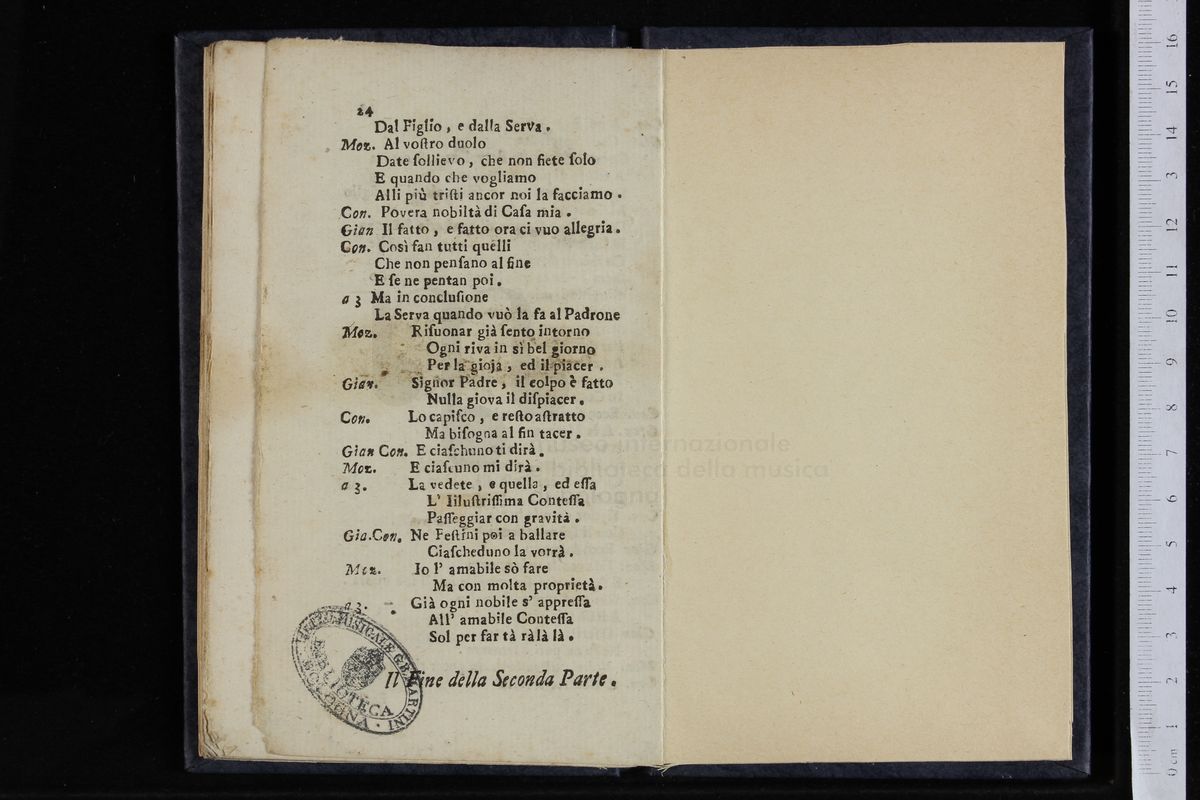 24
Dal Figlio, e dalla Serva.
Moz. Al voſtro duolo
Date ſollievo, che non ſiete ſolo
E quando che vogliamo
Alli più triſti ancor noi la facciamo.
Con. Povera nobiltà di Caſa mia.
Gian Il fatto, e fatto ora ci vuo allegria.
Con. Così fan tutti quelli
Che non penſano al fine
E ſe ne pentan poi.
a 3 Ma in concluſione
La Serva quando vuò la fa al Padrone
Moz. Riſuonar già ſento intorno
Ogni riva in sì bel giorno
Per la gioja, ed il piacer.
Gian. Signor Padre, il colpo è fatto
Nulla giova il diſpiacer.
Con. Lo capiſco, e reſto aſtratto
Ma biſogna al fin tacer.
Gian Con. E ciaſchuno ti dirà.
Moz. E ciaſcuno mi dirà.
a 3. La vedete, e quella, ed eſſa
L' Iiluſtriſſima Conteſſa
Paſſeggiar con gravità.
Gia.Con. Ne Feſtini poi a ballare
Ciaſcheduno la vorrà.
Moz. Io l' amabile sò fare
Ma con molta proprietà.
a 3. Già ogni nobile s' appreſſa
All' amabile Conteſſa
Sol per far tà ràlà là.
Il Fine della Seconda Parte.
LICEO MUSICALE G.B. MARTINI
BIBLIOTECA
BOLOGNA
museo internazionale
biblioteca della musica
bologna
0 cm 1 2 3 4 5 6 7 8 9 10 11 12 3 14 15 16